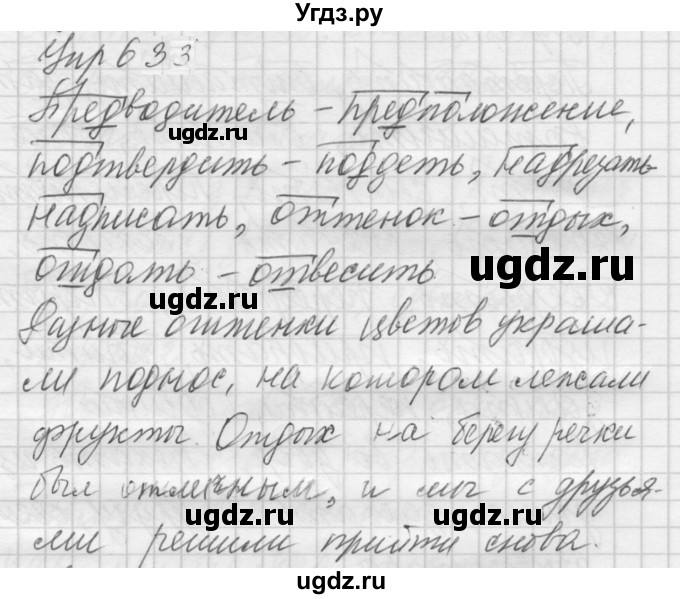 Угдз.ру
Упр 633
Предводитель – предположение,
подтвердить – поддеть, надрезать
надписать, оттенок – отдых,
отдать – отвесить
Разные оттенки цветов украша-
ли поднос, на котором лежали
фрукты. Отдых на берегу речки
был отличным, и мы с друзья-
ми решили прийти снова.
ugdz.ru
ugdz.ru
ugdz.ru
ugdz.ru
ugdz.ru
ugdz.ru
ugdz.ru
ugdz.ru